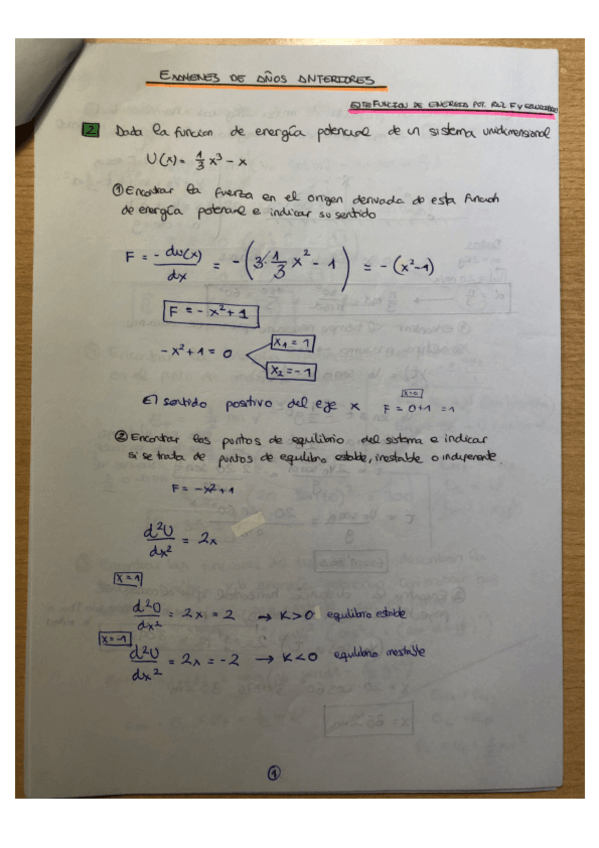 EXAMENES DE AÑOS ANTERIORES
ESTE FUNCION DE ENERGIA POT. F Y
2 Dada la funcion de energía potencial de un sistema unidimensional
U(x) = 1/3 x³ - x
① Encontrar la fuerza en el origen derivada de esta función
de energía potencial e indicar su sentido
F = - du(x)/dx = - (3·1/3 x² - 1) = - (x²-1)
F = - x² + 1
- x² + 1 = 0
x₁ = 1
x₂ = -1
El sentido positivo del eje x
x=0
F = 0+1 = 1
② Encontrar los puntos de equilibrio del sistema e indicar
si se trata de puntos de equilibrio estable, inestable o indiferente.
F = -x² + 1
d²U/dx² = 2x
x=1
d²U/dx² = 2x = 2 → K>0 equilibrio estable
x=-1
d²U/dx² = 2x = -2 → K<0 equilibrio inestable
①